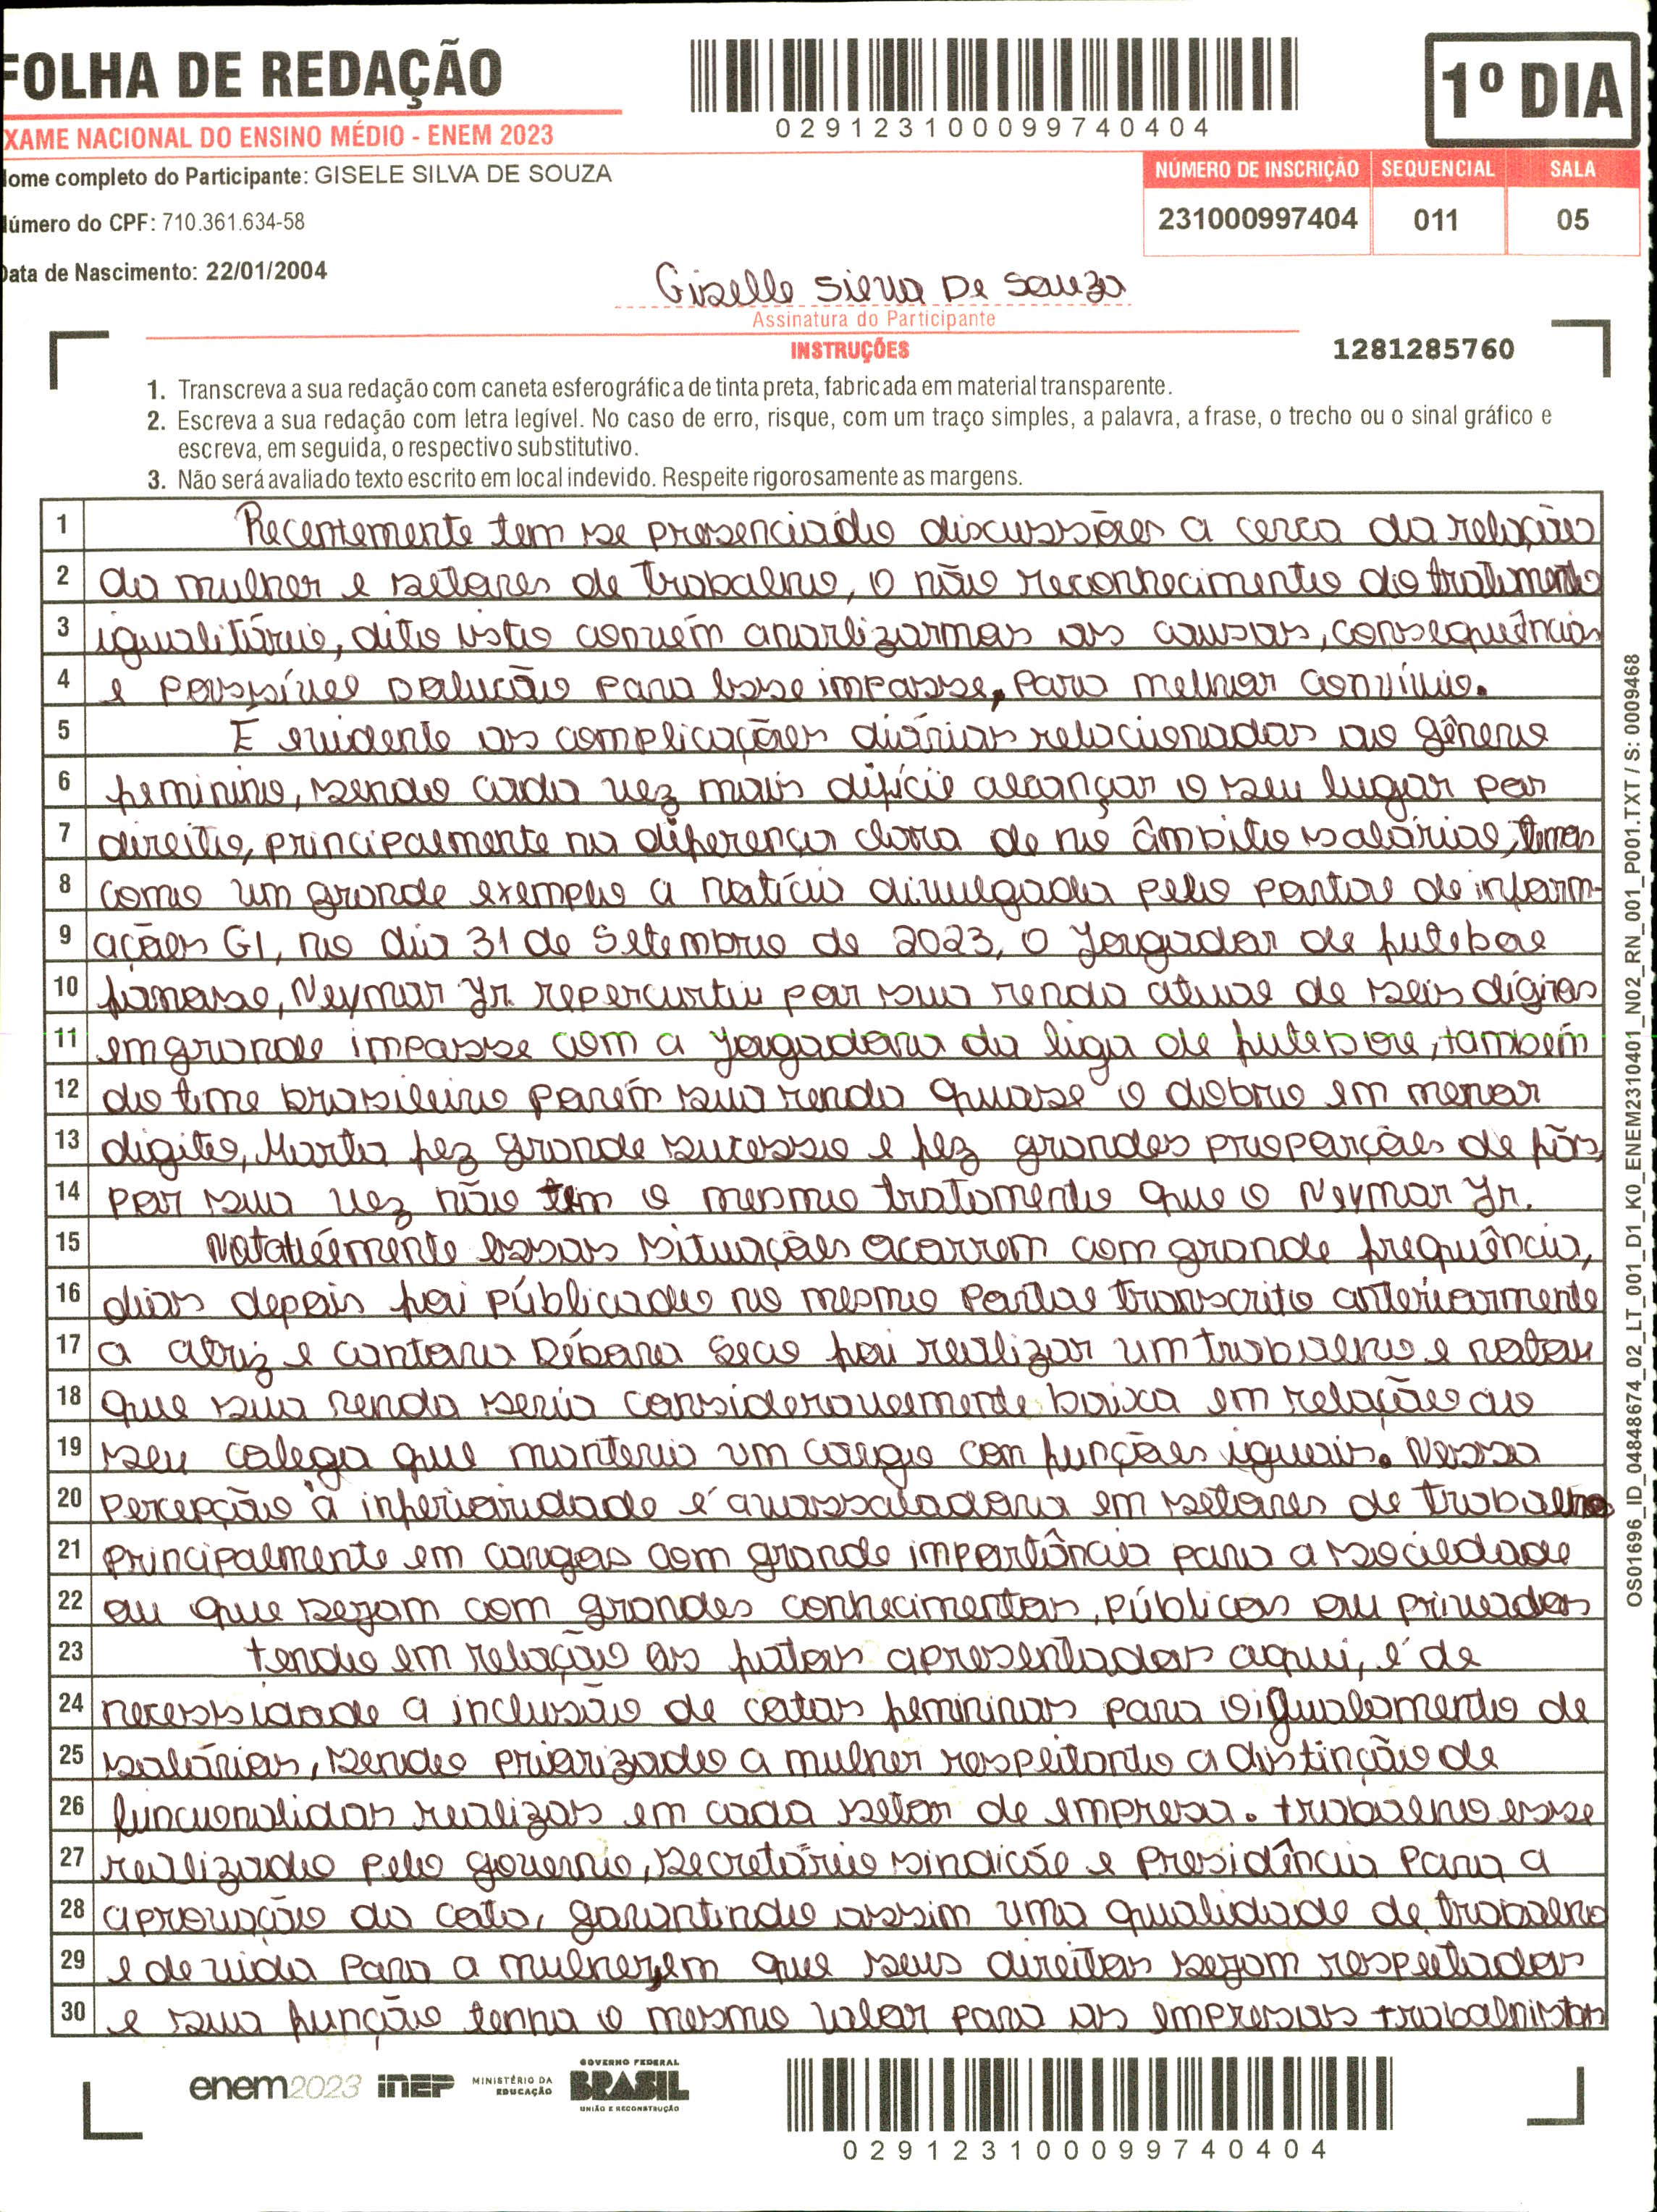 FOLHA DE REDAÇÃO
EXAME NACIONAL DO ENSINO MÉDIO - ENEM 2023
029123100099740404
1º DIA
Nome completo do Participante: GISELE SILVA DE SOUZA
Número do CPF: 710.361.634-58
Data de Nascimento: 22/01/2004
NÚMERO DE INSCRIÇÃO SEQUENCIAL SALA
231000997404 011 05
Giselle Silva De Souza
Assinatura do Participante
INSTRUÇÕES
1281285760
1. Transcreva a sua redação com caneta esferográfica de tinta preta, fabricada em material transparente.
2. Escreva a sua redação com letra legível. No caso de erro, risque, com um traço simples, a palavra, a frase, o trecho ou o sinal gráfico e
escreva, em seguida, o respectivo substitutivo.
3. Não será avaliado texto escrito em local indevido. Respeite rigorosamente as margens.
1 Recentemente tem se presenciado discussões a cerca da relação
2 da mulher e setores de trabalho, o não reconhecimento do tratamento
3 igualitário, dito isto convém analizarmos as causas, consequências
4 e possível solução para esse impasse, para melhor convívio.
5 É evidente as complicações diárias relacionadas ao gênero
6 feminino, sendo cada vez mais difícil alcançar o seu lugar por
7 direito, principalmente na diferença clara de no âmbito salárial, temos
8 como um grande exemplo a notícia divulgada pelo portal de inform-
9 ações G1, no dia 31 de Setembro de 2023, o jougador de futebol
10 famoso, Neymar Jr. repercurtiu por sua renda atual de seis dígitos
11 em grande impasse com a jougadora da liga de futebol, também
12 do time brasileiro porém sua renda quase o dobro em menor
13 digito, Marta fez grande sucesso e fez grandes proporções de fãs,
14 por sua vez não tem o mesmo tratamento que o Neymar Jr.
15 essas situações ocorrem com grande frequência,
16 dias depois foi públicado no mesmo portal transcrito anteriormente
17 a atriz e cantora Débora Seco foi realizar um trabalho e notou
18 que sua renda seria consideravelmente baixa em relação ao
19 seu colega que manteria um cargo com funções iguais. Nessa
20 percepção à inferioridade é avassaladora em setores de trabalho
21 principalmente em cargos com grande importância para a sociedade
22 ou que sejam com grandes conhecimentos, públicos ou privados
23 tendo em relação os fatos apresentados aqui, é de
24 necessidade a inclusão de cotas femininas para o igualamento de
25 salários, sendo priorizado a mulher respeitando a distinção de
26 funcionalidas realizas em cada setor de empresa. trabalho esse
27 realizado pelo governo, secretário sindicão e Presidência para a
28 aprovação da cota, garantindo assim uma qualidade de trabalho
29 e de vida para a mulher, em que seus direitos sejam respeitados
30 e sua função tenha o mesmo valor para as empresas trabalhistas
OS01696_ID_04848674_02_LT_001_D1_K0_ENEM2310401_N02_RN_001_P001.TXT / S: 0009468
enem2023 inep MINISTÉRIO DA EDUCAÇÃO GOVERNO FEDERAL BRASIL UNIÃO E RECONSTRUÇÃO
029123100099740404